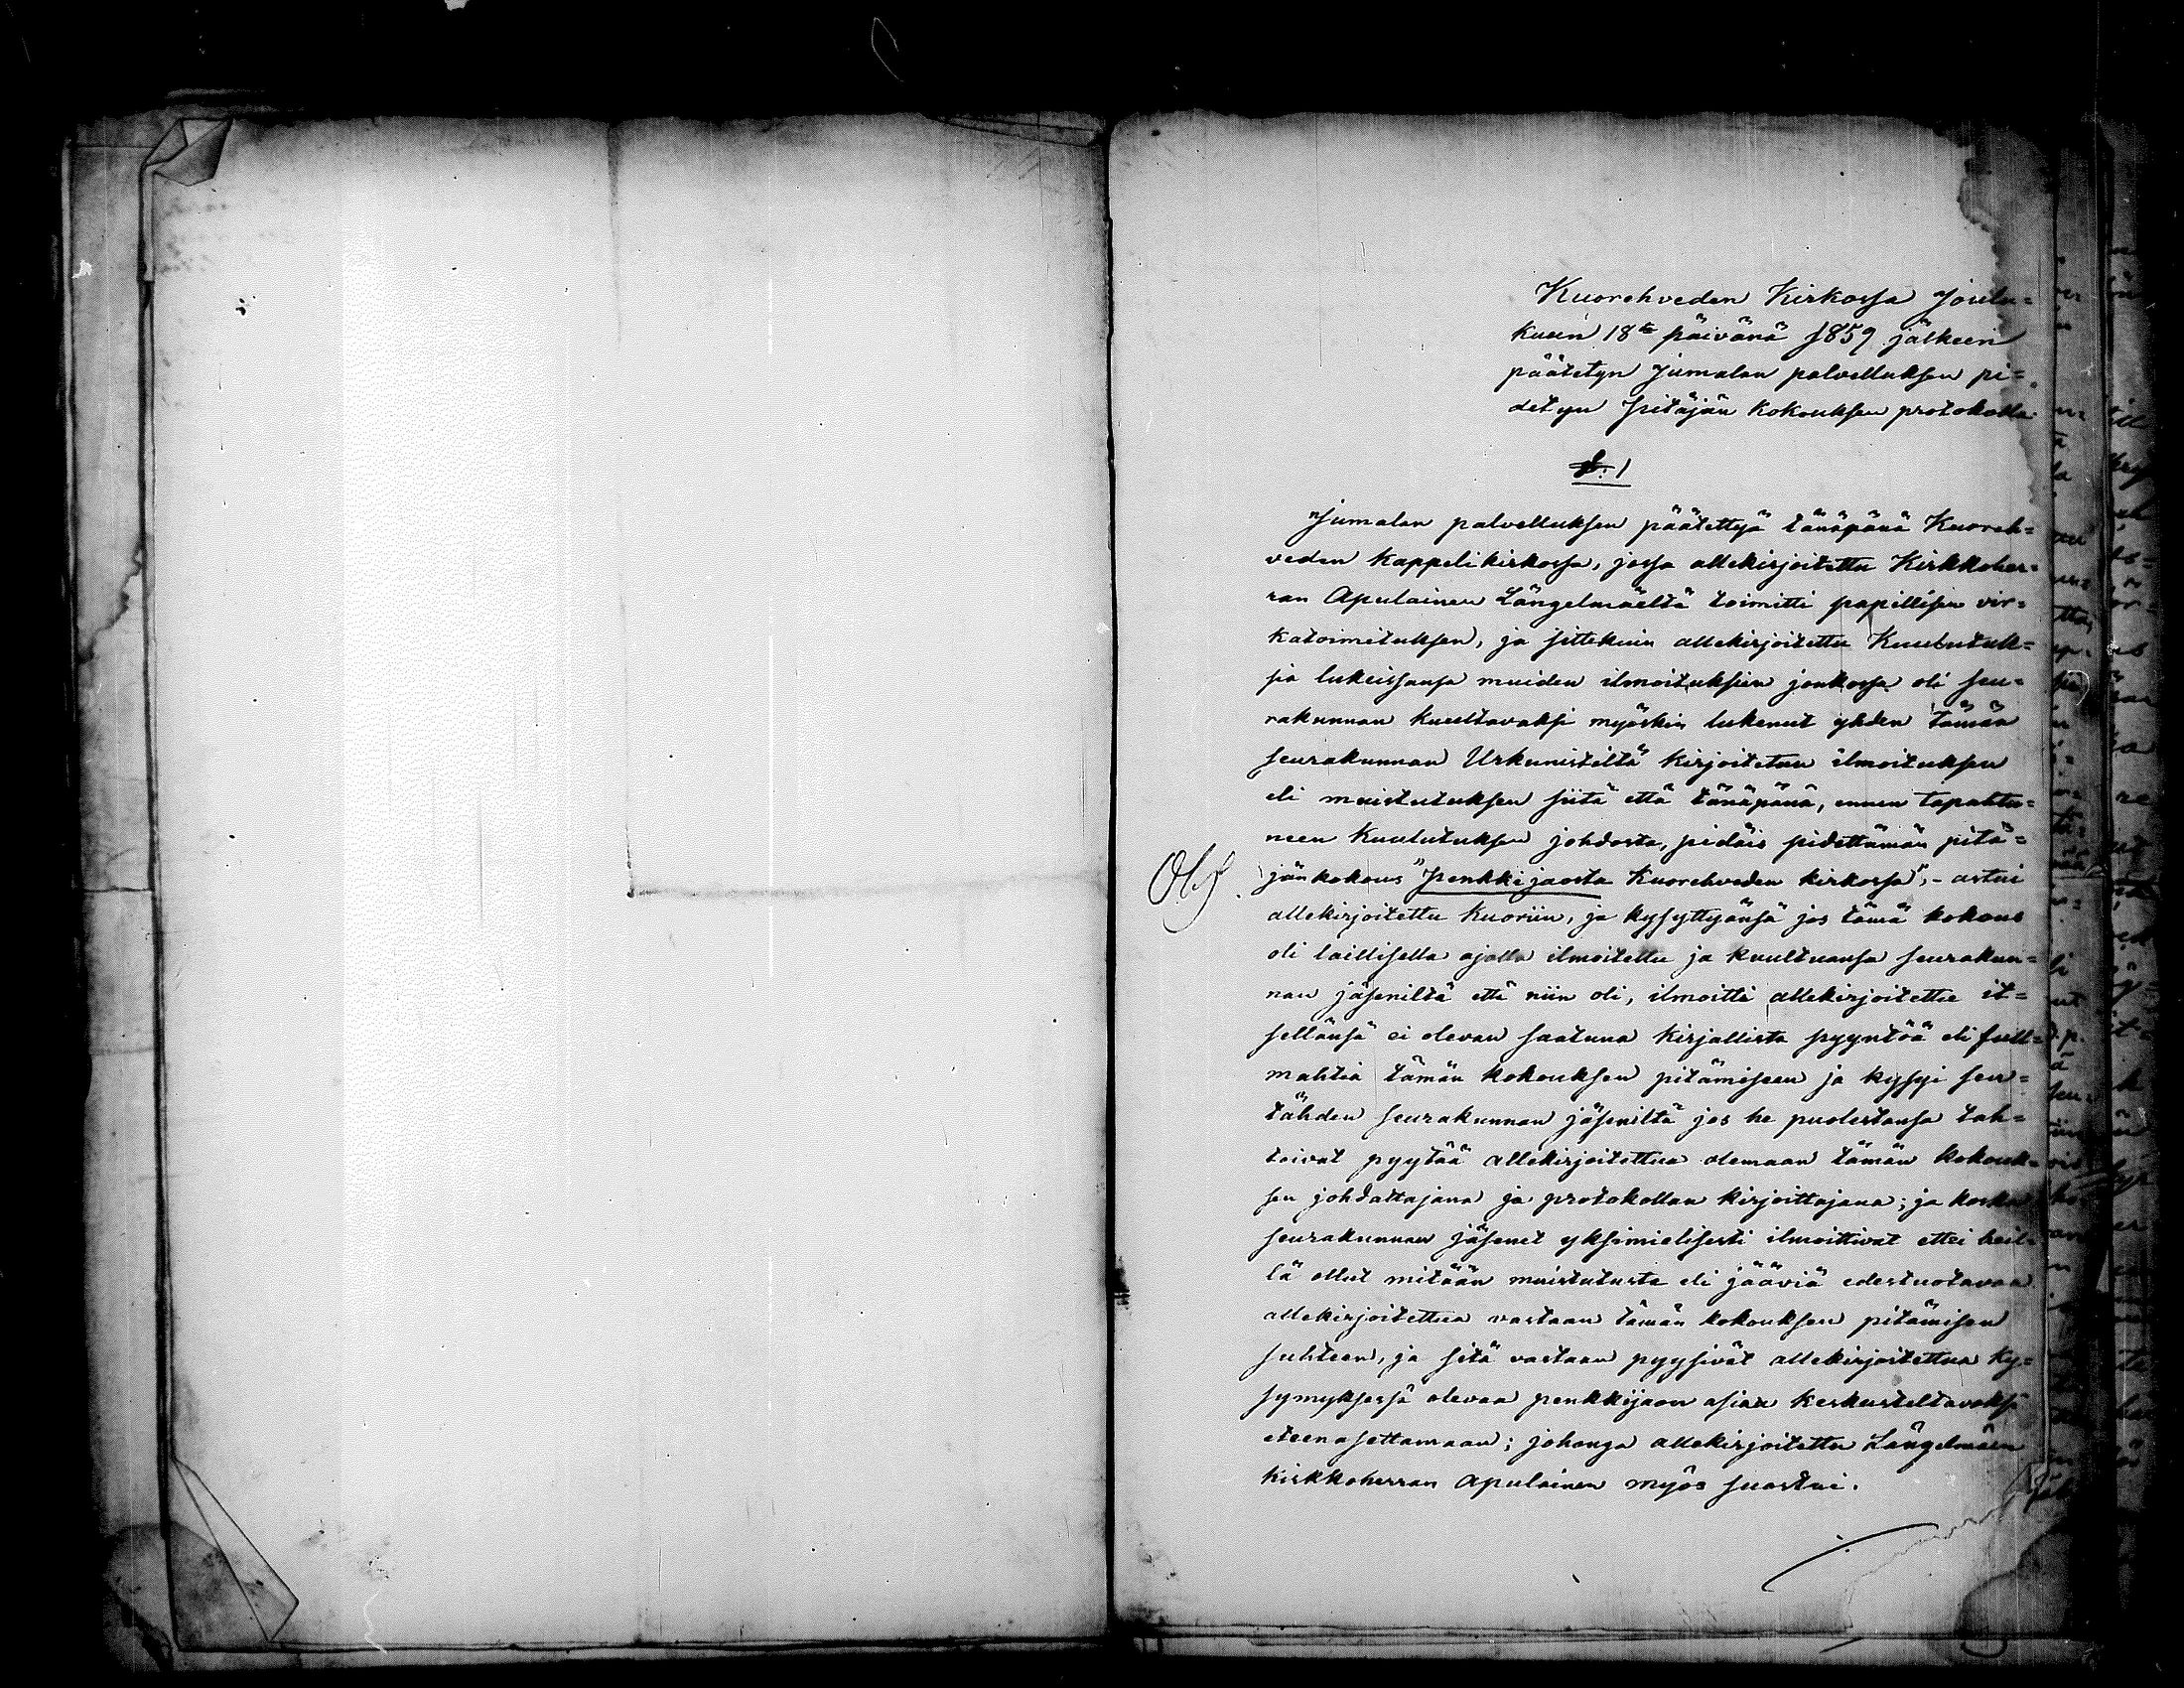 Kuorehveden Kirkossa Joulu=
kuun 18ta päivänä 1859 jälkeen
päätetyn Jumalan palvelluksen pi=
detyn Pitäjän kokouksen protokolla
§. 1
"Jumalan palvelluksen päätettyä tänäpänä Kuoreh=
veden Kappelikirkossa, jossa allekirjoitettu Kirkkoher=
ran Apulainen Längelmäeltä toimitti papillisen vir=
katoimituksen, ja sittekuin allekirjoitettu Kuulutuk=
sia lukeissansa muiden ilmoituksien joukossa oli seu=
rakunnan kuultavaksi myöskin lukenut yhden tämän
seurakunnan Urkunistilta kirjoitetun ilmoituksen
eli muistutuksen siitä että tänäpänä, ennen tapahtu=
neen Kuulutuksen johdosta, pidäis pidettämän pitä=
Obs.
jänkokous "Penkkijaosta Kuorehveden kirkossa", - astui
allekirjoitettu Kuoriin, ja kysyttyänsä jos tämä kokous
oli laillisella ajalla ilmoitettu ja kuultuansa seurakun=
nan jäseniltä että niin oli, ilmoitti allekirjoitettu it=
sellänsä ei olevan saatuna kirjallista pyyntöä eli full=
mahtia tämän kokouksen pitämiseen ja kysyi sen=
tähden seurakunnan jäseniltä jos he puolestansa tah=
toivat pyytää allekirjoitettua olemaan tämän kokouk=
sen johdattajana ja protokollan kirjoittajana; ja koska
seurakunnan jäsenet yksimielisesti ilmoittivat ettei heil=
lä ollut mitään muistutusta eli jääviä edestuotavaa
allekirjoitettua vastaan tämän kokouksen pitämisen
suhteen, ja sitä vastaan pyysivät allekirjoitettua ky=
symyksessä olevaa penkkijaon asiaa keskusteltavaksi
eteenasettamaan; johonga allekirjoitettu Längelmäen
kirkkoherran apulainen myös suostui.